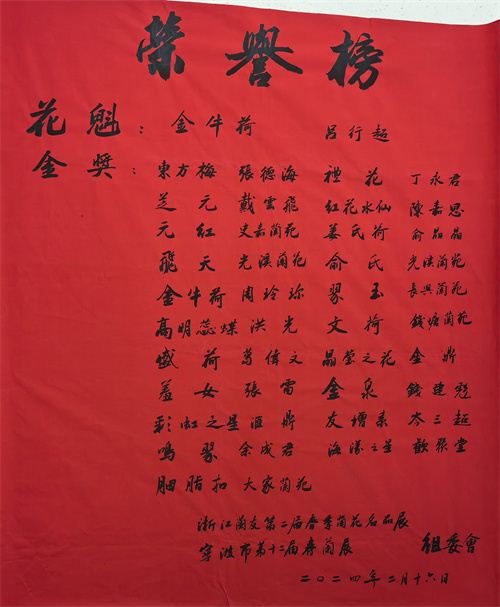 榮譽榜
花魁：金牛荷 吕行超
金獎：東方梅 張德海 禮花 丁永君
芝元 戴雲飛 紅花水仙 陳嘉思
元紅 史嘉蘭苑 姜氏荷 俞晶晶
飛天 光溪蘭苑 俞氏 光溪蘭苑
金牛荷 周玲珍 翠玉 長興蘭苑
高明蕊蝶 洪光 文荷 錢塘蘭苑
盛荷 葛偉文 晶瑩之花 金鼎
羞女 張雷 金泉 錢建彪
彩虹之星 匯鼎 友增素 岑三超
鳴翠 余成君 海漾之星 歡聚堂
胭脂扣 大家蘭苑
浙江蘭友第二届春季蘭花名品展
寧波市第十二届春蘭展 組委會
二〇二四年二月十六日